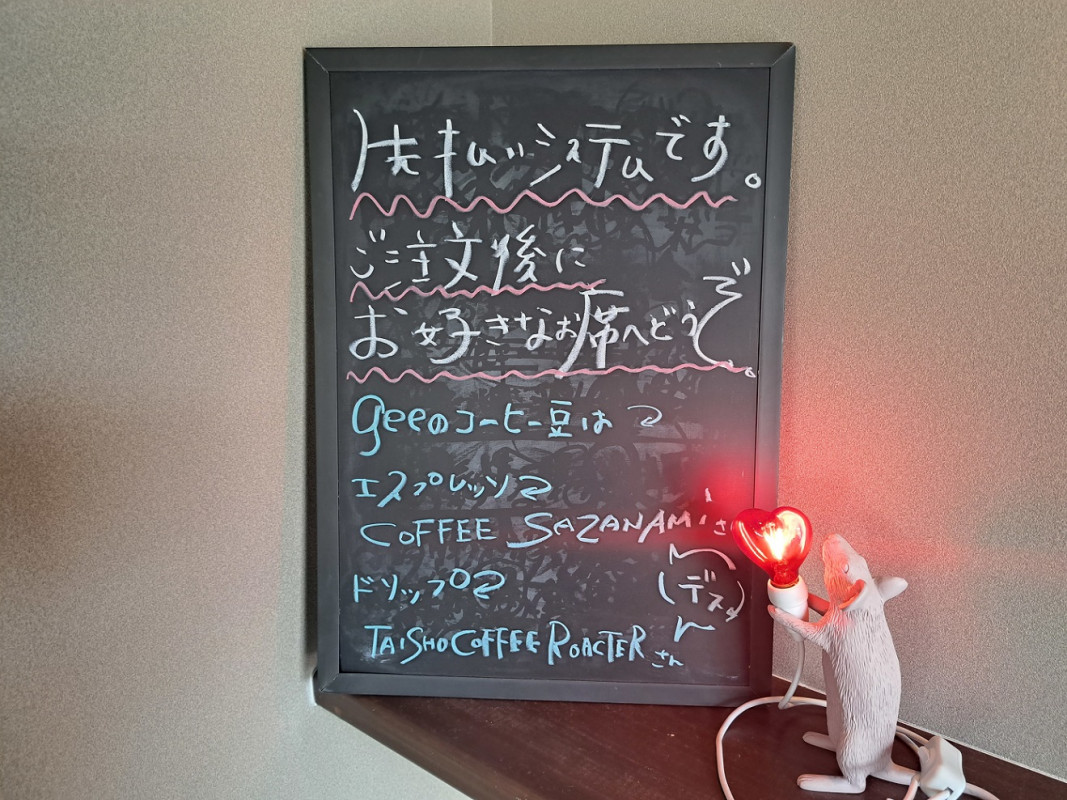 先払いシステムです。
ご注文後に
お好きなお席へどうぞ。
geeのコーヒー豆は
エスプレッソ
COFFEE SAZANAMI さ
ドリップ
(デス)
TAISHO COFFEE ROACTER さん